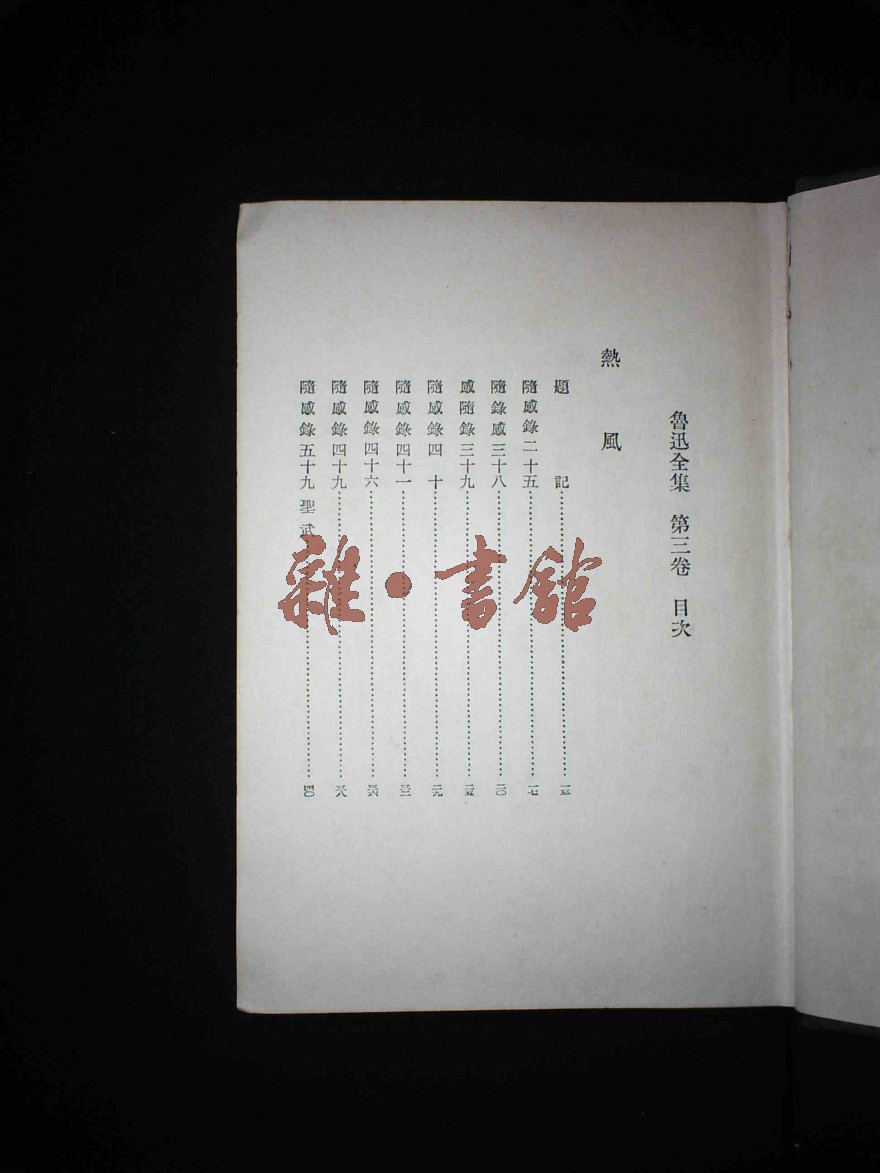 魯迅全集 第三卷 目次
熱風
題記……一五
隨感錄二十五……一七
隨錄感三十八……二〇
感隨錄三十九……二五
隨感錄四十……二九
隨感錄四十一……三三
隨感錄四十六……三六
隨感錄四十九……三八
隨感錄五十九 聖武……四〇
雜·書館